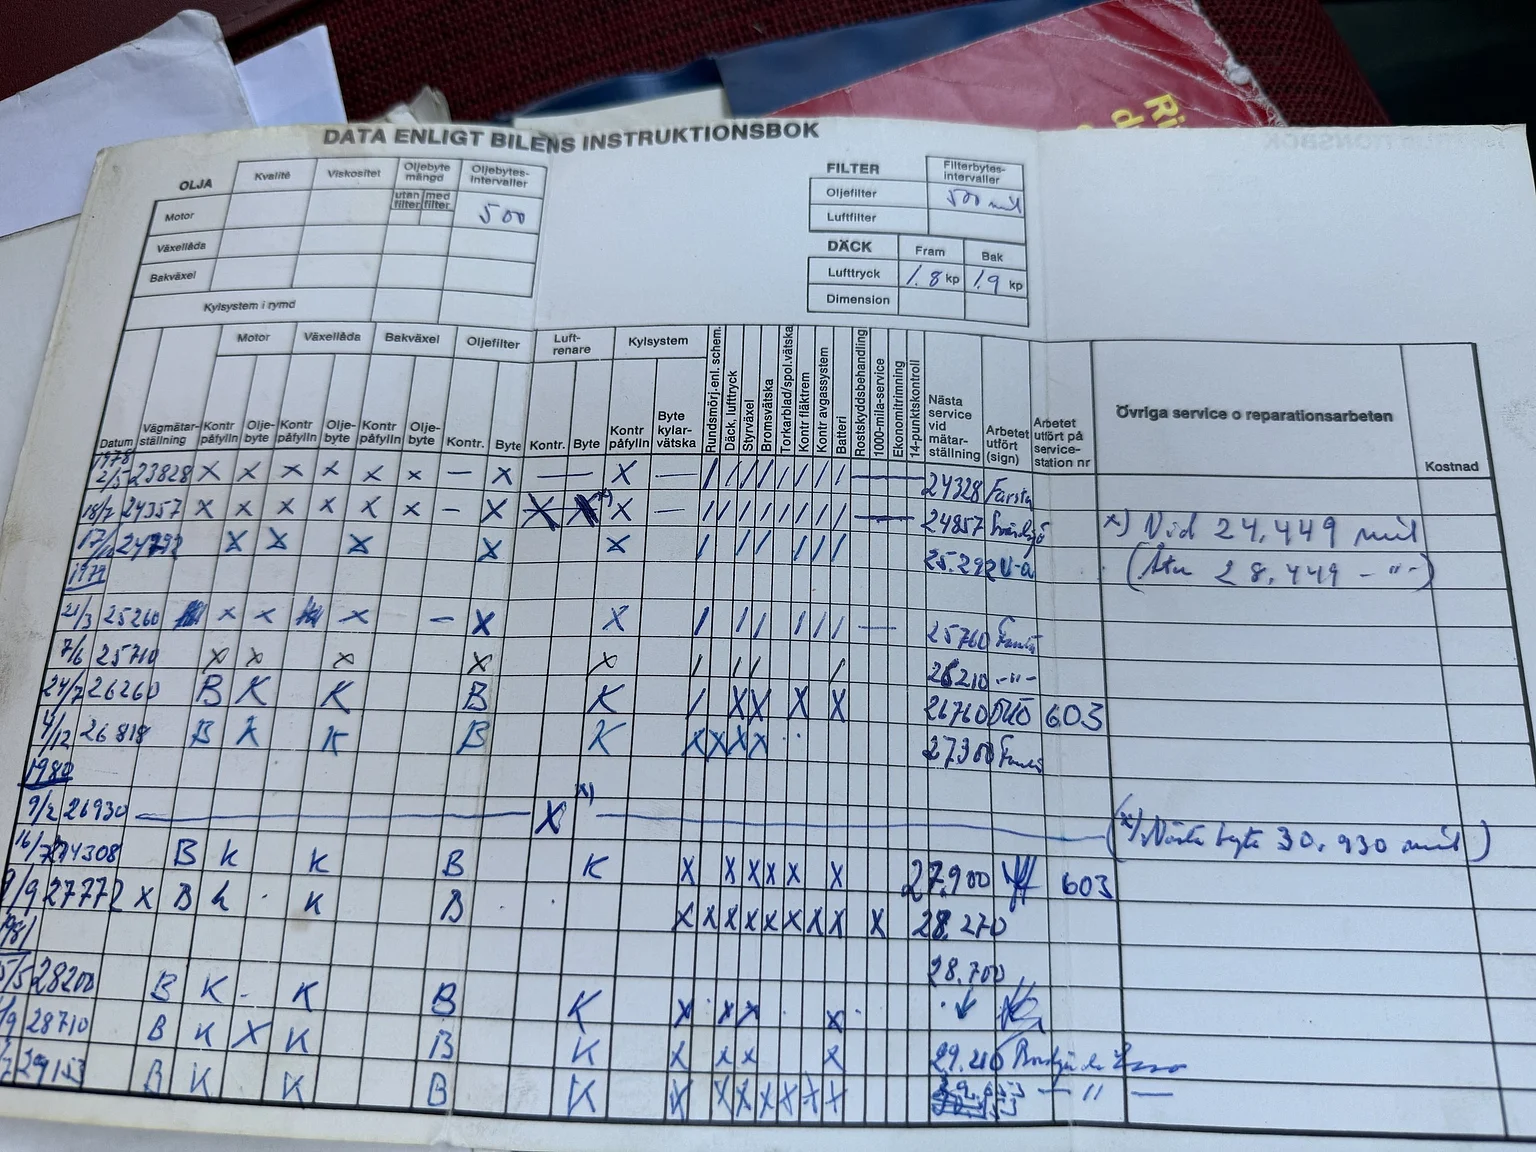 Ri
d
DATA ENLIGT BILENS INSTRUKTIONSBOK
OLJA Kvalité Viskositet Oljebyte mängd Oljebytes-intervaller
utan filter med filter
Motor 500
Växellåda
Bakväxel
Kylsystem i rymd
FILTER Filterbytes-intervaller
Oljefilter 500 mil
Luftfilter
DÄCK Fram Bak
Lufttryck 1.8 kp 1.9 kp
Dimension
Motor Växellåda Bakväxel Oljefilter Luft-renare Kylsystem
Datum Vägmätar-ställning Kontr påfylln Olje-byte Kontr påfylln Olje-byte Kontr påfylln Olje-byte Kontr. Byte Kontr. Byte Kontr påfylln Byte kylar-vätska Rundsmörj.enl. schem. Däck, lufttryck Styrväxel Bromsvätska Torkarblad/spol.vätska Kontr fläktrem Kontr avgassystem Batteri Rostskyddsbehandling 1000-mila-service Ekonomitrimning 14-punktskontroll Nästa service vid mätar-ställning Arbetet utfört (sign) Arbetet utfört på service-station nr Övriga service o reparationsarbeten Kostnad
1978
2/5 23828 X X X X X X — X — X — / / / / / / / / — 24328 Farsta
18/7 24357 X X X X X X — X X X x) X — / / / / / / / / — 24857 x) Vid 24,449 mil
24792 X X X X X / / / / / / 25.292 (Åter 28,449 -"-)
1979
21/3 25260 X X X — X X / / / / / / — 25760
7/6 25710 X X X X X / / / / 26210 -"-
24/7 26260 B K K B K / X X X X 26760 603
4/12 26818 B K K B K X X X X 27300
1980
9/2 26930 — X x) — (x) Nästa byte 30.930 mil)
16/ B K K B K X X X X X X 27.900 603
9/9 27772 X B K K B X X X X X X X X X 28.270
1981
28.700
5/5 28200 B K - K B K X X X X
/9 28710 B K X K B K X X X X 29.210
B K K B K X X X X X X X — " —